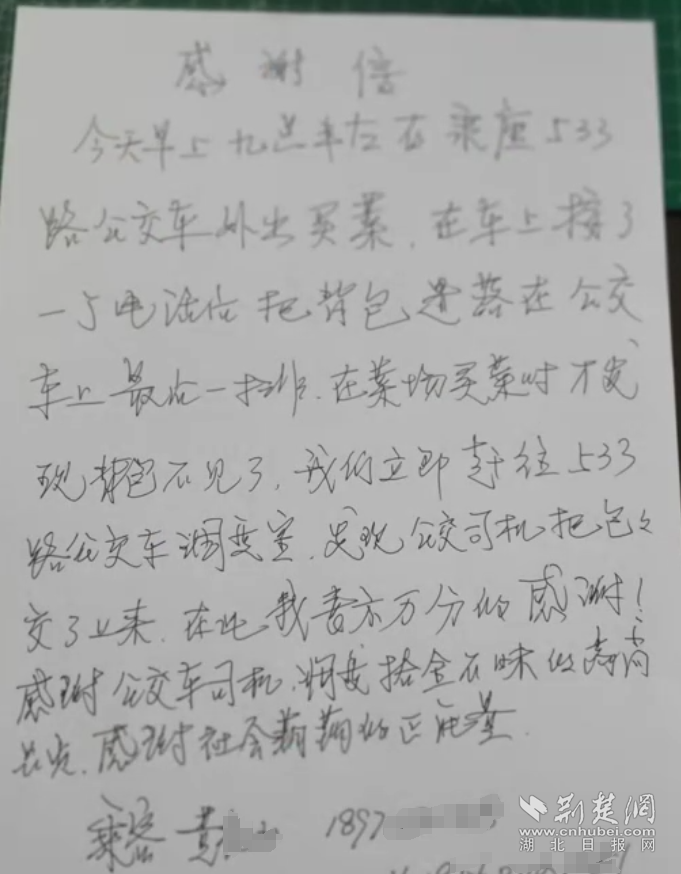 感谢信
今天早上九点半左右乘座533
路公交车外出买菜，在车上接了
一个电话后把背包遗落在公交
车上最后一排，在菜场买菜时才发
现背包不见了，我们立即赶往533
路公交车调度室，发现公交司机把包包
交了上来，在此我表示万分的感谢！
感谢公交车司机、调度拾金不昧的高尚
品质，感谢社会满满的正能量。
乘客 黄 1897
荆楚网
www.cnhubei.com
湖北日报网